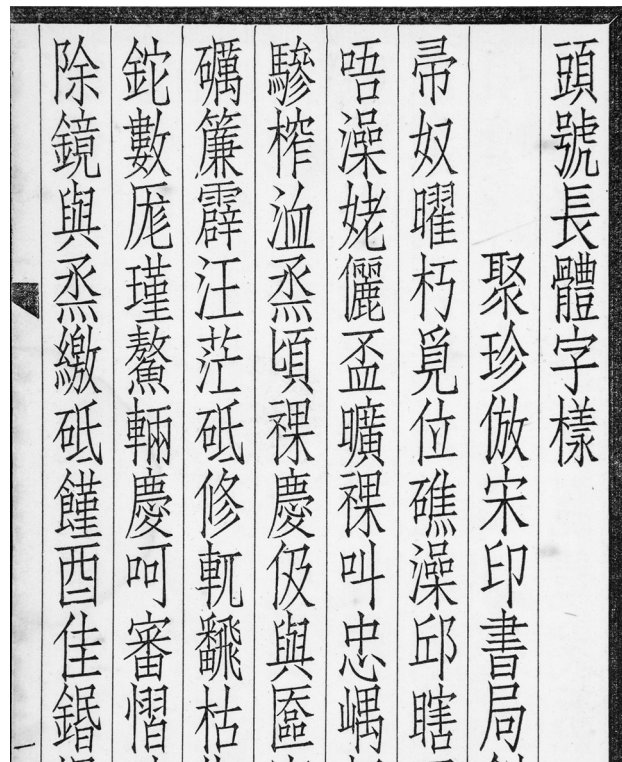 頭號長體字樣
聚珍倣宋印書局
帚奴曜朽覓位礁澡邱瞎
唔澡姥儷盃曠裸叫忠嵎
驂榨洫烝頃裸慶伋與匿
礪簾霹汪茫砥修軏飜枯
鉈數厖瑾鰲輛慶呵審慴
除鏡與烝繳砥饉酉佳錉
一